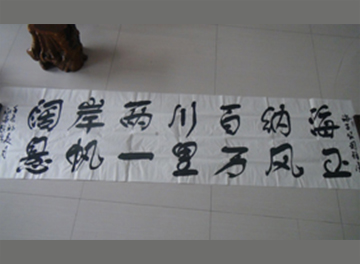 海纳百川两岸阔
正风万里一帆悬